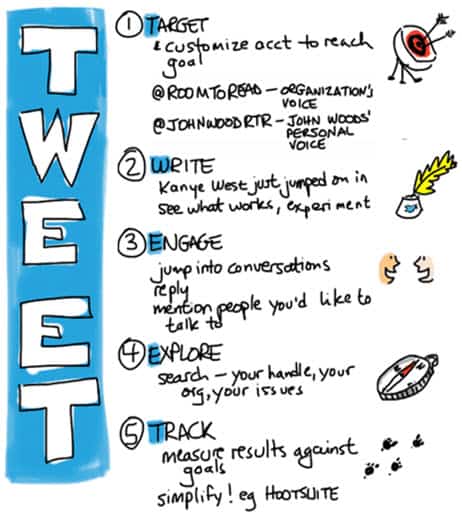 TWEET
① TARGET
& customize acct to reach
goal
@ROOMTOREAD — ORGANIZATION'S
VOICE
@JOHNWOODRTR — JOHN WOODS'
PERSONAL
VOICE
② WRITE
Kanye West just jumped on in
see what works, experiment
③ ENGAGE
jump into conversations
reply
mention people you'd like to
talk to
④ EXPLORE
search — your handle, your
org, your issues
⑤ TRACK
measure results against
goals
simplify! eg HOOTSUITE